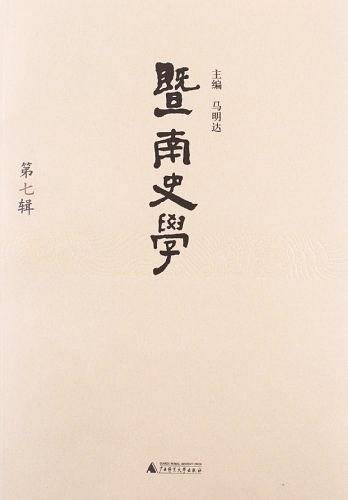 主编 马明达
暨南史學
第七辑
广西师范大学出版社